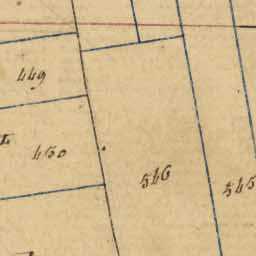 449
450
546
545